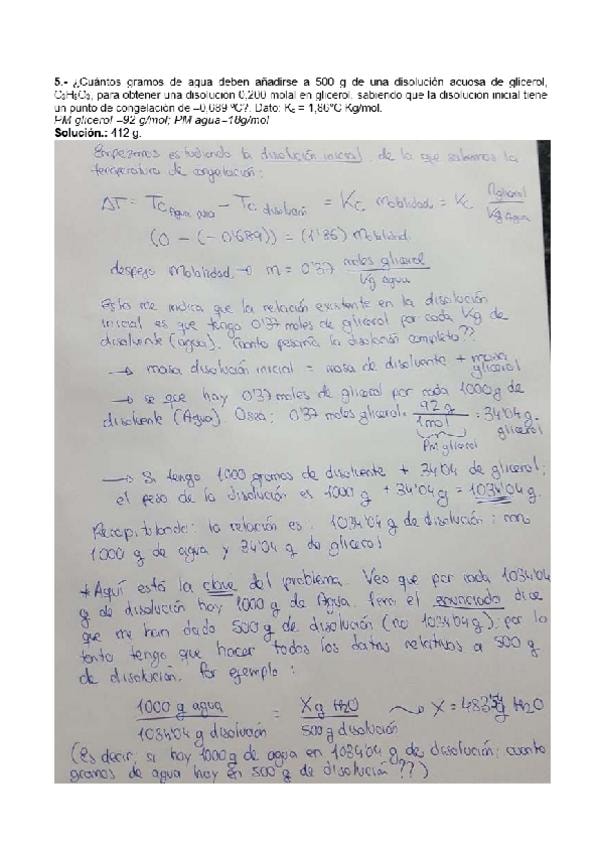 5.- ¿Cuántos gramos de agua deben añadirse a 500 g de una disolución acuosa de glicerol,
C₃H₈O₃, para obtener una disolución 0,200 molal en glicerol, sabiendo que la disolución inicial tiene
un punto de congelación de –0,689 ºC?. Dato: Kc = 1,86°C Kg/mol.
PM glicerol =92 g/mol; PM agua=18g/mol
Solución.: 412 g.
Empezamos estudiando la disolución inicial, de la que sabemos la
temperatura de congelación:
ΔT = Tc Agua pura - Tc disolución = Kc molalidad = Kc nglicerol / Kg Agua
(0 - (-0'689)) = (1'86) molalidad
despejo molalidad → m = 0'37 moles glicerol / Kg agua
Esto me indica que la relación existente en la disolución
inicial es que tengo 0'37 moles de glicerol por cada Kg de
disolvente (agua). Cuanto pesaría la disolución completa??
→ masa disolución inicial = masa de disolvente + masa glicerol
→ se que hay 0'37 moles de glicerol por cada 1000 g de
disolvente (Agua). Osea: 0'37 moles glicerol · 92 g / 1 mol = 34'04 g. glicerol
Pm glicerol
→ Si tengo 1000 gramos de disolvente + 34'04 de glicerol;
el peso de la disolución es 1000 g + 34'04 g = 1034'04 g.
Recapitulando: la relación es: 1034'04 g de disolución :
1000 g de agua y 34'04 g de glicerol
*Aquí está la clave del problema. Veo que por cada 1034'04
g de disolución hay 1000 g de Agua. Pero el enunciado dice
que me han dado 500 g de disolución (no 1034'04 g); por lo
tanto tengo que hacer todos los datos relativos a 500 g
de disolución. Por ejemplo:
1000 g agua / 1034'04 g disolución = X g H2O / 500 g disolución → X = g H2O
(Es decir; si hay 1000 g de agua en 1034'04 g de disolución; cuanto
gramos de agua hay en 500 g de disolución??)